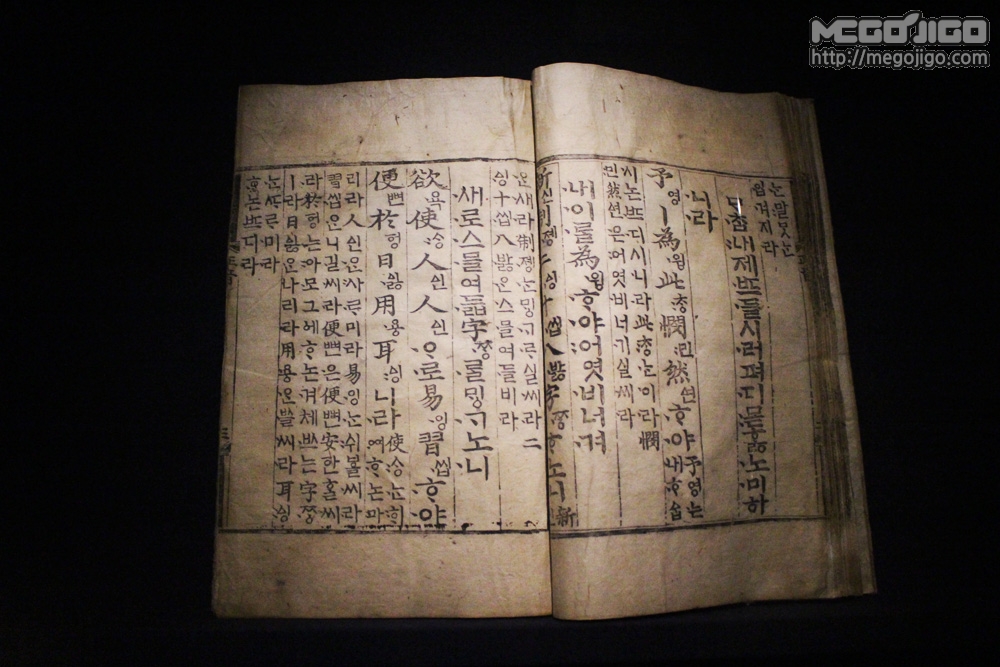 MEGOJIGO
http://megojigo.com
ᄂᆞᆫ말ᄆᆞᆺᄂᆞᆫ
입겨지라
ᄆᆞᄎᆞᆷ내제ᄠᅳ들시러펴디몯ᄒᆞᇙ노미하
니라
予영ㅣ為윙此ᄎᆞᆼ憫민然ᅀᅧᆫᄒᆞ야予영는내ᄒᆞᅀᆞᆸ
시논ᄠᅳ디시니라此ᄎᆞᆼᄂᆞᆫ이라憫
민然ᅀᅧᆫ은어엿비너기실씨라
내이ᄅᆞᆯ為윙ᄒᆞ야어엿비너겨
新신制졩二ᅀᅵᆼ十씹八바ᇙ字ᄍᆞᆼᄒᆞ노니新
은새라制졩ᄂᆞᆫᄆᆡᇰᄀᆞᄅᆞ실씨라二
ᅀᅵᆼ十씹八바ᇙ은스믈여들비라
새로스믈여듧字ᄍᆞᆼᄅᆞᆯᄆᆡᇰᄀᆞ노니
欲욕使ᄉᆞᆼ人ᅀᅵᆫ人ᅀᅵᆫᄋᆞ로易잉習씹ᄒᆞ야
便뼌於ᅙᅥᆼ日ᅀᅵᇙ用용耳ᅀᅵᆼ니라使ᄉᆞᆼᄂᆞᆫᄒᆡ여ᄒᆞ논마
리라人ᅀᅵᆫᄋᆞᆫ사ᄅᆞ미라易잉ᄂᆞᆫ쉬ᄫᅳᆯ씨라
習씹은니길씨라便뼌은便뼌安한ᄒᆞᆯ씨
라於ᅙᅥᆼ는아모그ᅌᅦᄒᆞ논겨체쓰는字ᄍᆞᆼ
ㅣ라日ᅀᅵᇙᄋᆞᆫ나리라用용은ᄡᅳᆯ씨라耳ᅀᅵᆼ
ᄂᆞᆫᄯᆞᄅᆞ미라
ᄒᆞ논ᄠᅳ디라